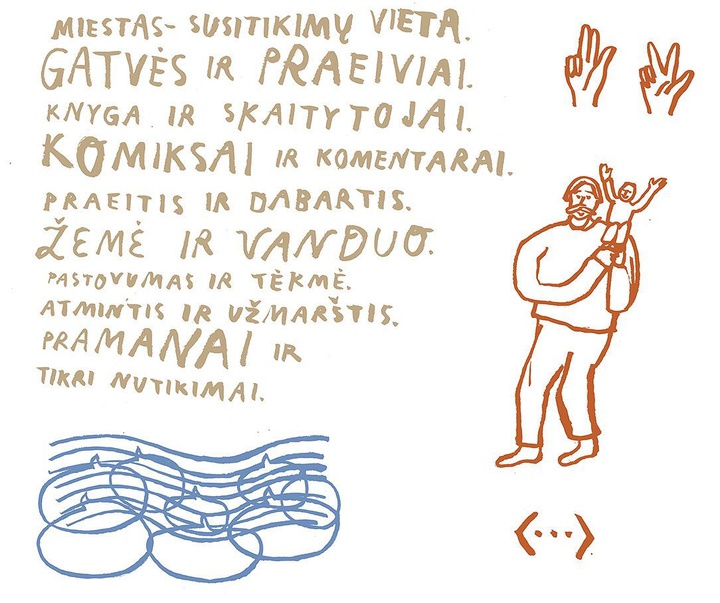 MIESTAS- SUSITIKIMŲ VIETA.
GATVĖS IR PRAEIVIAI.
KNYGA IR SKAITYTOJAI.
KOMIKSAI IR KOMENTARAI.
PRAEITIS IR DABARTIS.
ŽEMĖ IR VANDUO.
PASTOVUMAS IR TĖKMĖ.
ATMINTIS IR UŽMARŠTIS.
PRAMANAI IR
TIKRI NUTIKIMAI.
<...>